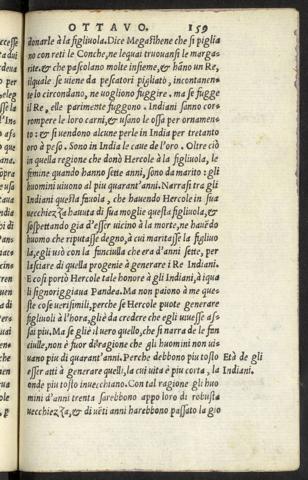 OTTAVO. 159
donarle à la figliuola. Dice Megasthene che si piglia
no con reti le Conche, ne lequai trouansi le marga-
rite: & che pascolano molte insieme, & hāno un Re,
ilquale se viene da pescatori pigliato, incontanen-
te lo circondano, ne uogliono fuggire. ma se fugge
il Re, elle parimente fuggono. Indiani sanno cor-
rompere le loro carni, & usano le ossa per ornamen-
to: & si uendono alcune perle in India per tretanto
oro à peso. Sono in India le caue de l'oro. Oltre ciò
in quella regione che donò Hercole à la figliuola, le
femine quando hanno sette anni, sono da marito: gli
huomini uiuono al piu quarant'anni. Narrasi tra gli
Indiani questa fauola, che hauendo Hercole in sua
uecchiezza hauuta di sua moglie questa figliuola, &
sospettando gia d'esser uicino à la morte, ne hauēdo
huomo che riputasse degno, à cui maritasse la figliuo
la, egli usò con la funciulla che era d'anni sette, per
lasciare di quella progenie à generare i Re Indiani.
E cosi portò Hercole tale honore à gli Indiani, à iqua
li signoriggiaua Pandea. Ma non paiono à me que-
ste cose uerisimili, perche se Hercole puote generare
figliuoli à l'hora, gliè da credere che egli uuesse as-
sai piu. Ma se gliè il uero quello, che si narra de le fun
ciulle, non è fuor di ragione che gli huomini non ui-
uano piu di quarant'anni. Perche debbono piu tosto
esser atti à generare quelli, la cui uita è piu corta, &
onde piu tosto inuecchiano. Con tal ragione gli huo
mini d'anni trenta sarebbono appo loro di robusta
uecchiezza, & di uēti anni harebbono passato la gio
Età de gli
Indiani.